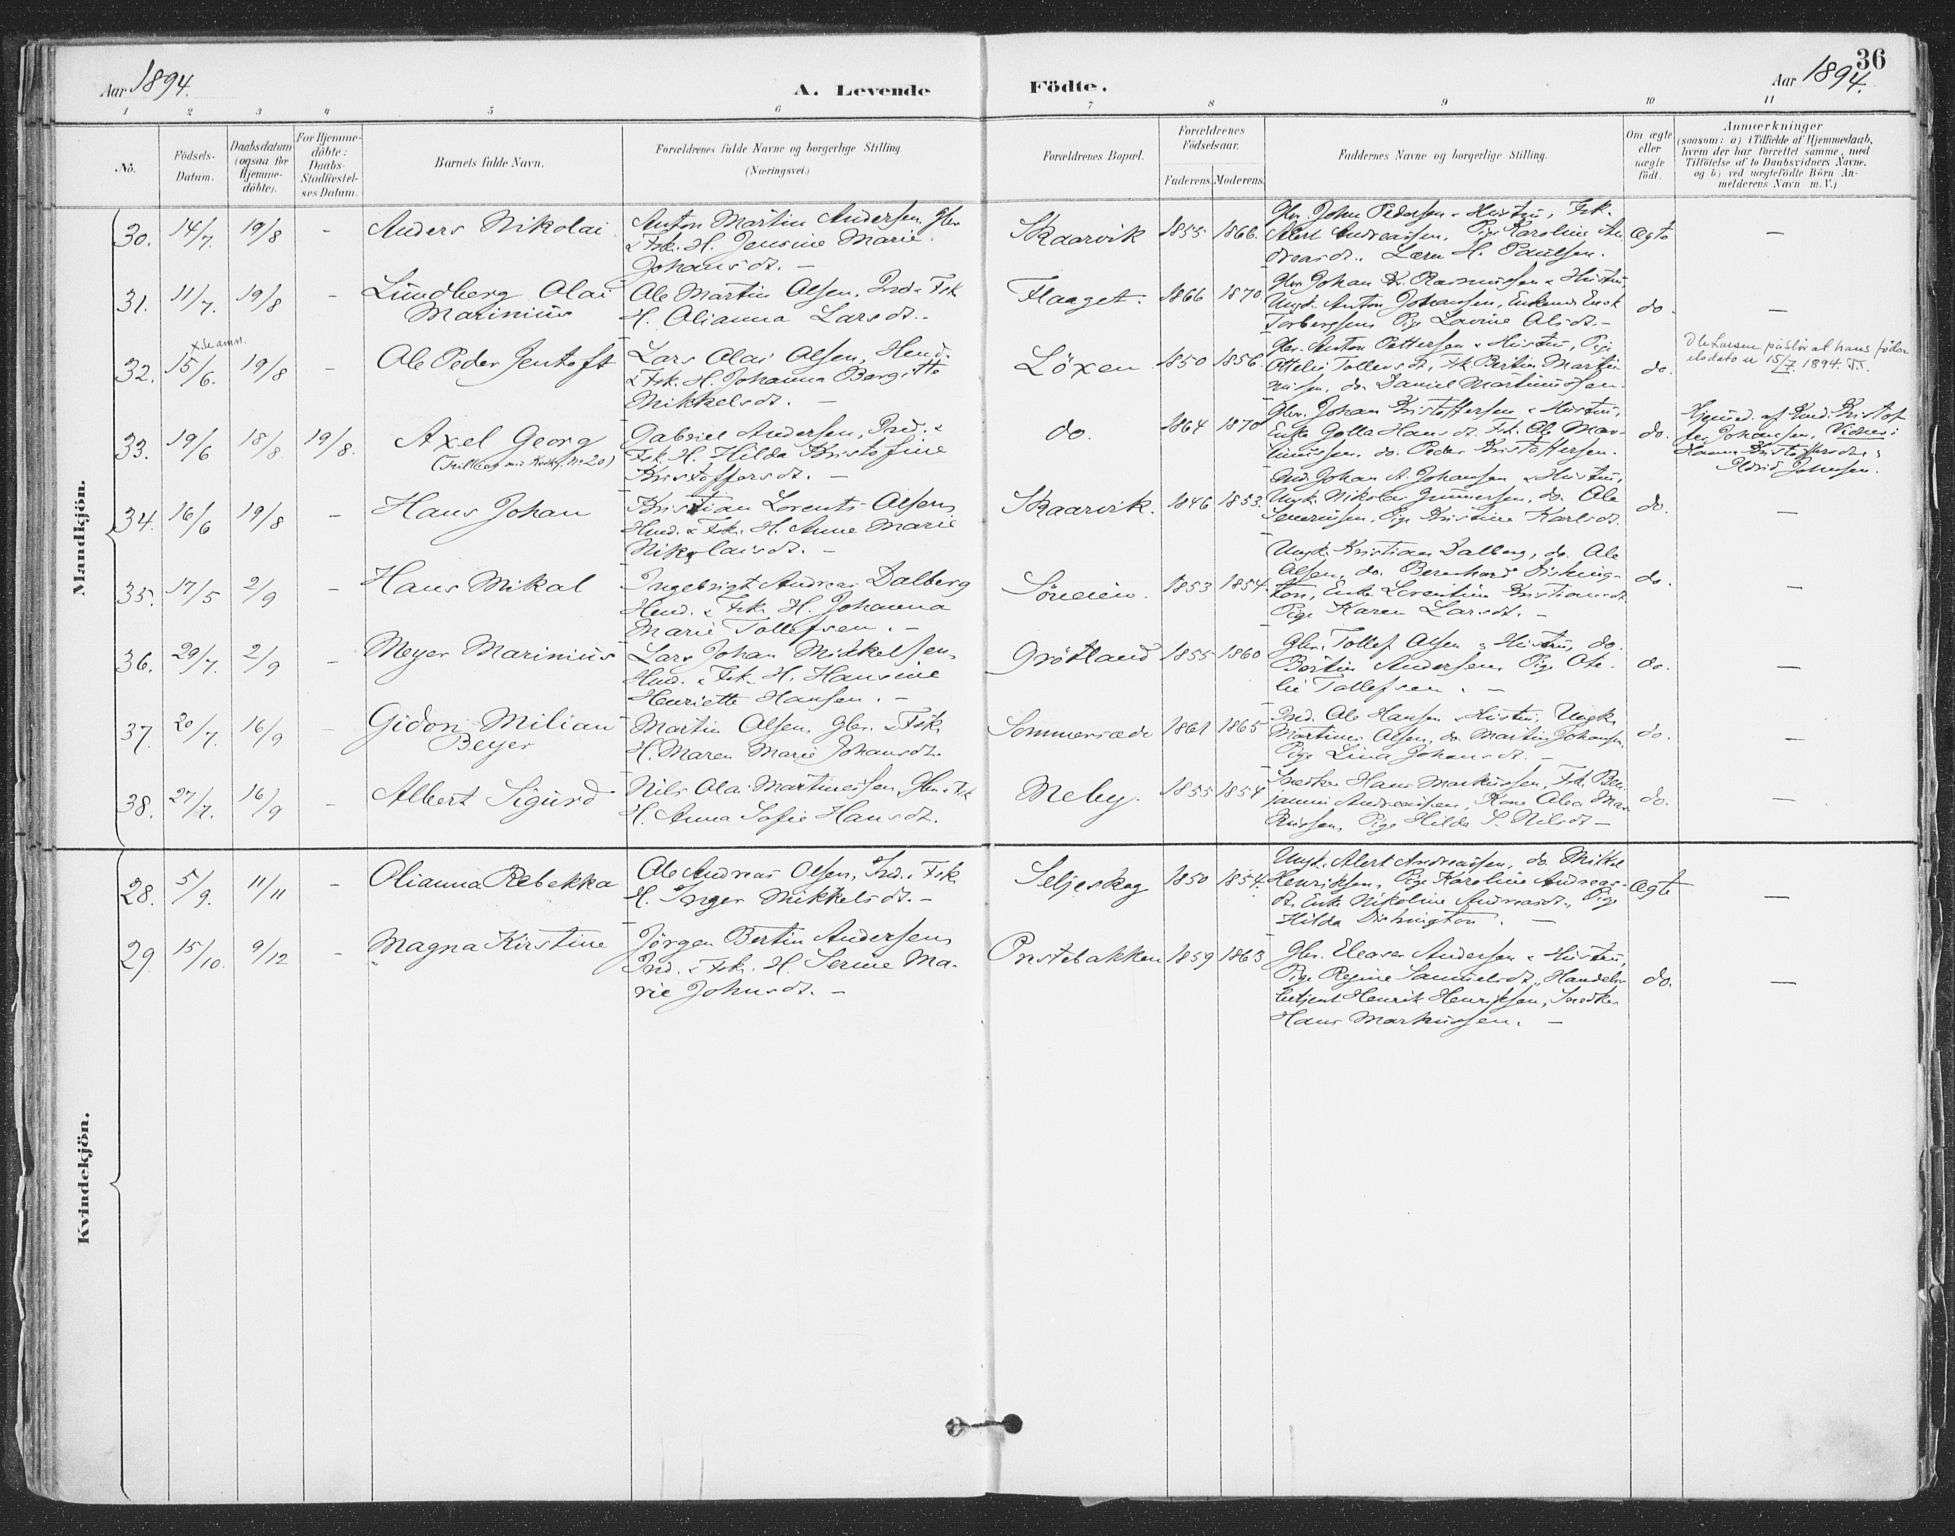 36
Aar 1894.
A. Levende Födte.
Aar 1894.
1 2 3 4 5 6 7 8 9 10 11
No.
Födsels-Datum.
Daabsdatum (ogsaa for Hjemme-döbte).
For Hjemme-döbte: Daabs-Stadfæstel-ses Datum.
Barnets fulde Navn.
Forældrenes fulde Navne og borgerlige Stilling. (Næringsvei.)
Forældrenes Bopæl.
Forældrenes Födselsaar.
Faderens. Moderens.
Faddernes Navne og borgerlige Stilling.
Om ægte eller uægte födt.
Anmærkninger (saasom: a) i Tilfælde af Hjemmedaab, hvem der har forrettet samme, med Tilföielse af to Daabsvidners Navne, og b) ved uægtefödte Börn Anmelderens Navn m. V.)
Mandkjön.
30. 14/7. 19/8 - Anders Nikolai Anton Martin Andersen, Gbr. & Fsk. H. Jensine Marie Johansdt. - Skaarvik 1855 1866. Gbr. John Pedersen & Hustru, Fsk. Alert Andreassen, Pige Karoline Andreasdt., Lærer H. Paulsen. Ægte -
31. 11/7. 19/8 - Lundberg Olai Marinius Ole Martin Olsen, Ind. & Fsk. H. Olianna Larsdt. Flaaget. 1866 1870 Gbr. Johan Kr. Rasmussen & Hustru, Ungk. Anton Johansen, Enkem. Torbergsen, Pige Lovine Olsdt. - do. -
32. 15/6. x Se anm. 19/8 - Ole Peder Jentoft Lars Olai Olsen, Hmd. & Fsk. H. Johanna Bergitte Mikkelsdt. - Löxen 1850 1856. Gbr. Anton Pettersen & Hustru, Pige Ottelie Tollevsdt., Fsk. Bertin Martinussen, do. Daniel Martinussen. do. Ole Larsen påstår at hans fødselsdato er 15/7 1894.
33. 19/6 18/8. 19/8. Axel Georg Gabriel Andersen, Ind. & Fsk. H. Hilda Kristofine Kristoffersdt. - do. 1864 1870 Gbr. Johan Kristoffersen & Hustru, Enke Golla Hansdt. Fsk. Ole Martinussen, do. Peder Kristoffersen. do. Hjemd. af Kristoffer Johansen. Vidner: Hanna Kristoffersdt. & Johnsen.
34. 16/6 19/8 - Hans Johan Kristian Lorents Olsen, Hmd. & Fsk. H. Anne Marie Nikolaisdt. - Skaarvik. 1846 1853. Ind. Johan A. Johansen & Hustru, Ungk. Nikolai Gunnersen, do. Ole Severinsen, Pige Kristine Karlsdt. do. -
35. 17/5 2/9 - Hans Mikal Ingebrigt Andreas Dalberg Hmd. & Fsk. H. Johanna Marie Tollefsen. - Söreien. 1853 1854. Ungk. Kristian Dalberg, do. Ole Olsen, do. Bernhard Diskington, Enke Leventine Kristiansdt. Pige Karen Larsdt. - do. -
36. 29/7. 2/9 - Meyer Marinius Lars Johan Mikkelsen, Hmd. & Fsk. H. Hansine Henriette Hansen. - Grötland 1855 1860 Gbr. Tollef Olsen & Hustru, do. Bertin Andersen, Pige Otelie Tollefsen. - do. -
37. 20/7. 16/9 - Gidon Milian Beyer Martin Olsen, Gbr. & Fsk. H. Maren Marie Johansdt. Sommersæde 1861 1865 Ind. Ole Hansen & Hustru, Ungk. Martines Olsen, do. Martin Johansen, Pige Lina Johansdt. - do. -
38. 27/7. 16/9 - Albert Sigurd Nils Olai Martinessen, Gbr. & Fsk. H. Anna Sofie Hansdt. Meby. 1855 1854 Snedker Hans Markussen, Fsk. Benjamin Andreassen, Kone Olea Markussen, Pige Hilda S. Nilsdt. - do. -
Kvindekjön.
28. 5/9. 11/11 - Olianna Rebekka Ole Andreas Olsen, Ind. & Fsk. H. Inger Mikkelsdt. - Seljeskog 1850 1854. Ungk. Alert Andreassen, do. Mikkel Henriksen, Pige Karoline Andreasdt. Enke Nikoline Andreasdt., Pige Hilda Dishington. - Ægte -
29. 15/10. 9/12 - Magna Kirstine Jörgen Bertin Andersen, Ind. & Fsk. H. Serine Marie Johnsdt. - Prestebakken 1859 1863 Gbr. Eleaser Andersen & Hustru, Pige Regine Samuelsdt., Handelsbetjent Henrik Henriksen, Snedker Hans Markussen. - do. -